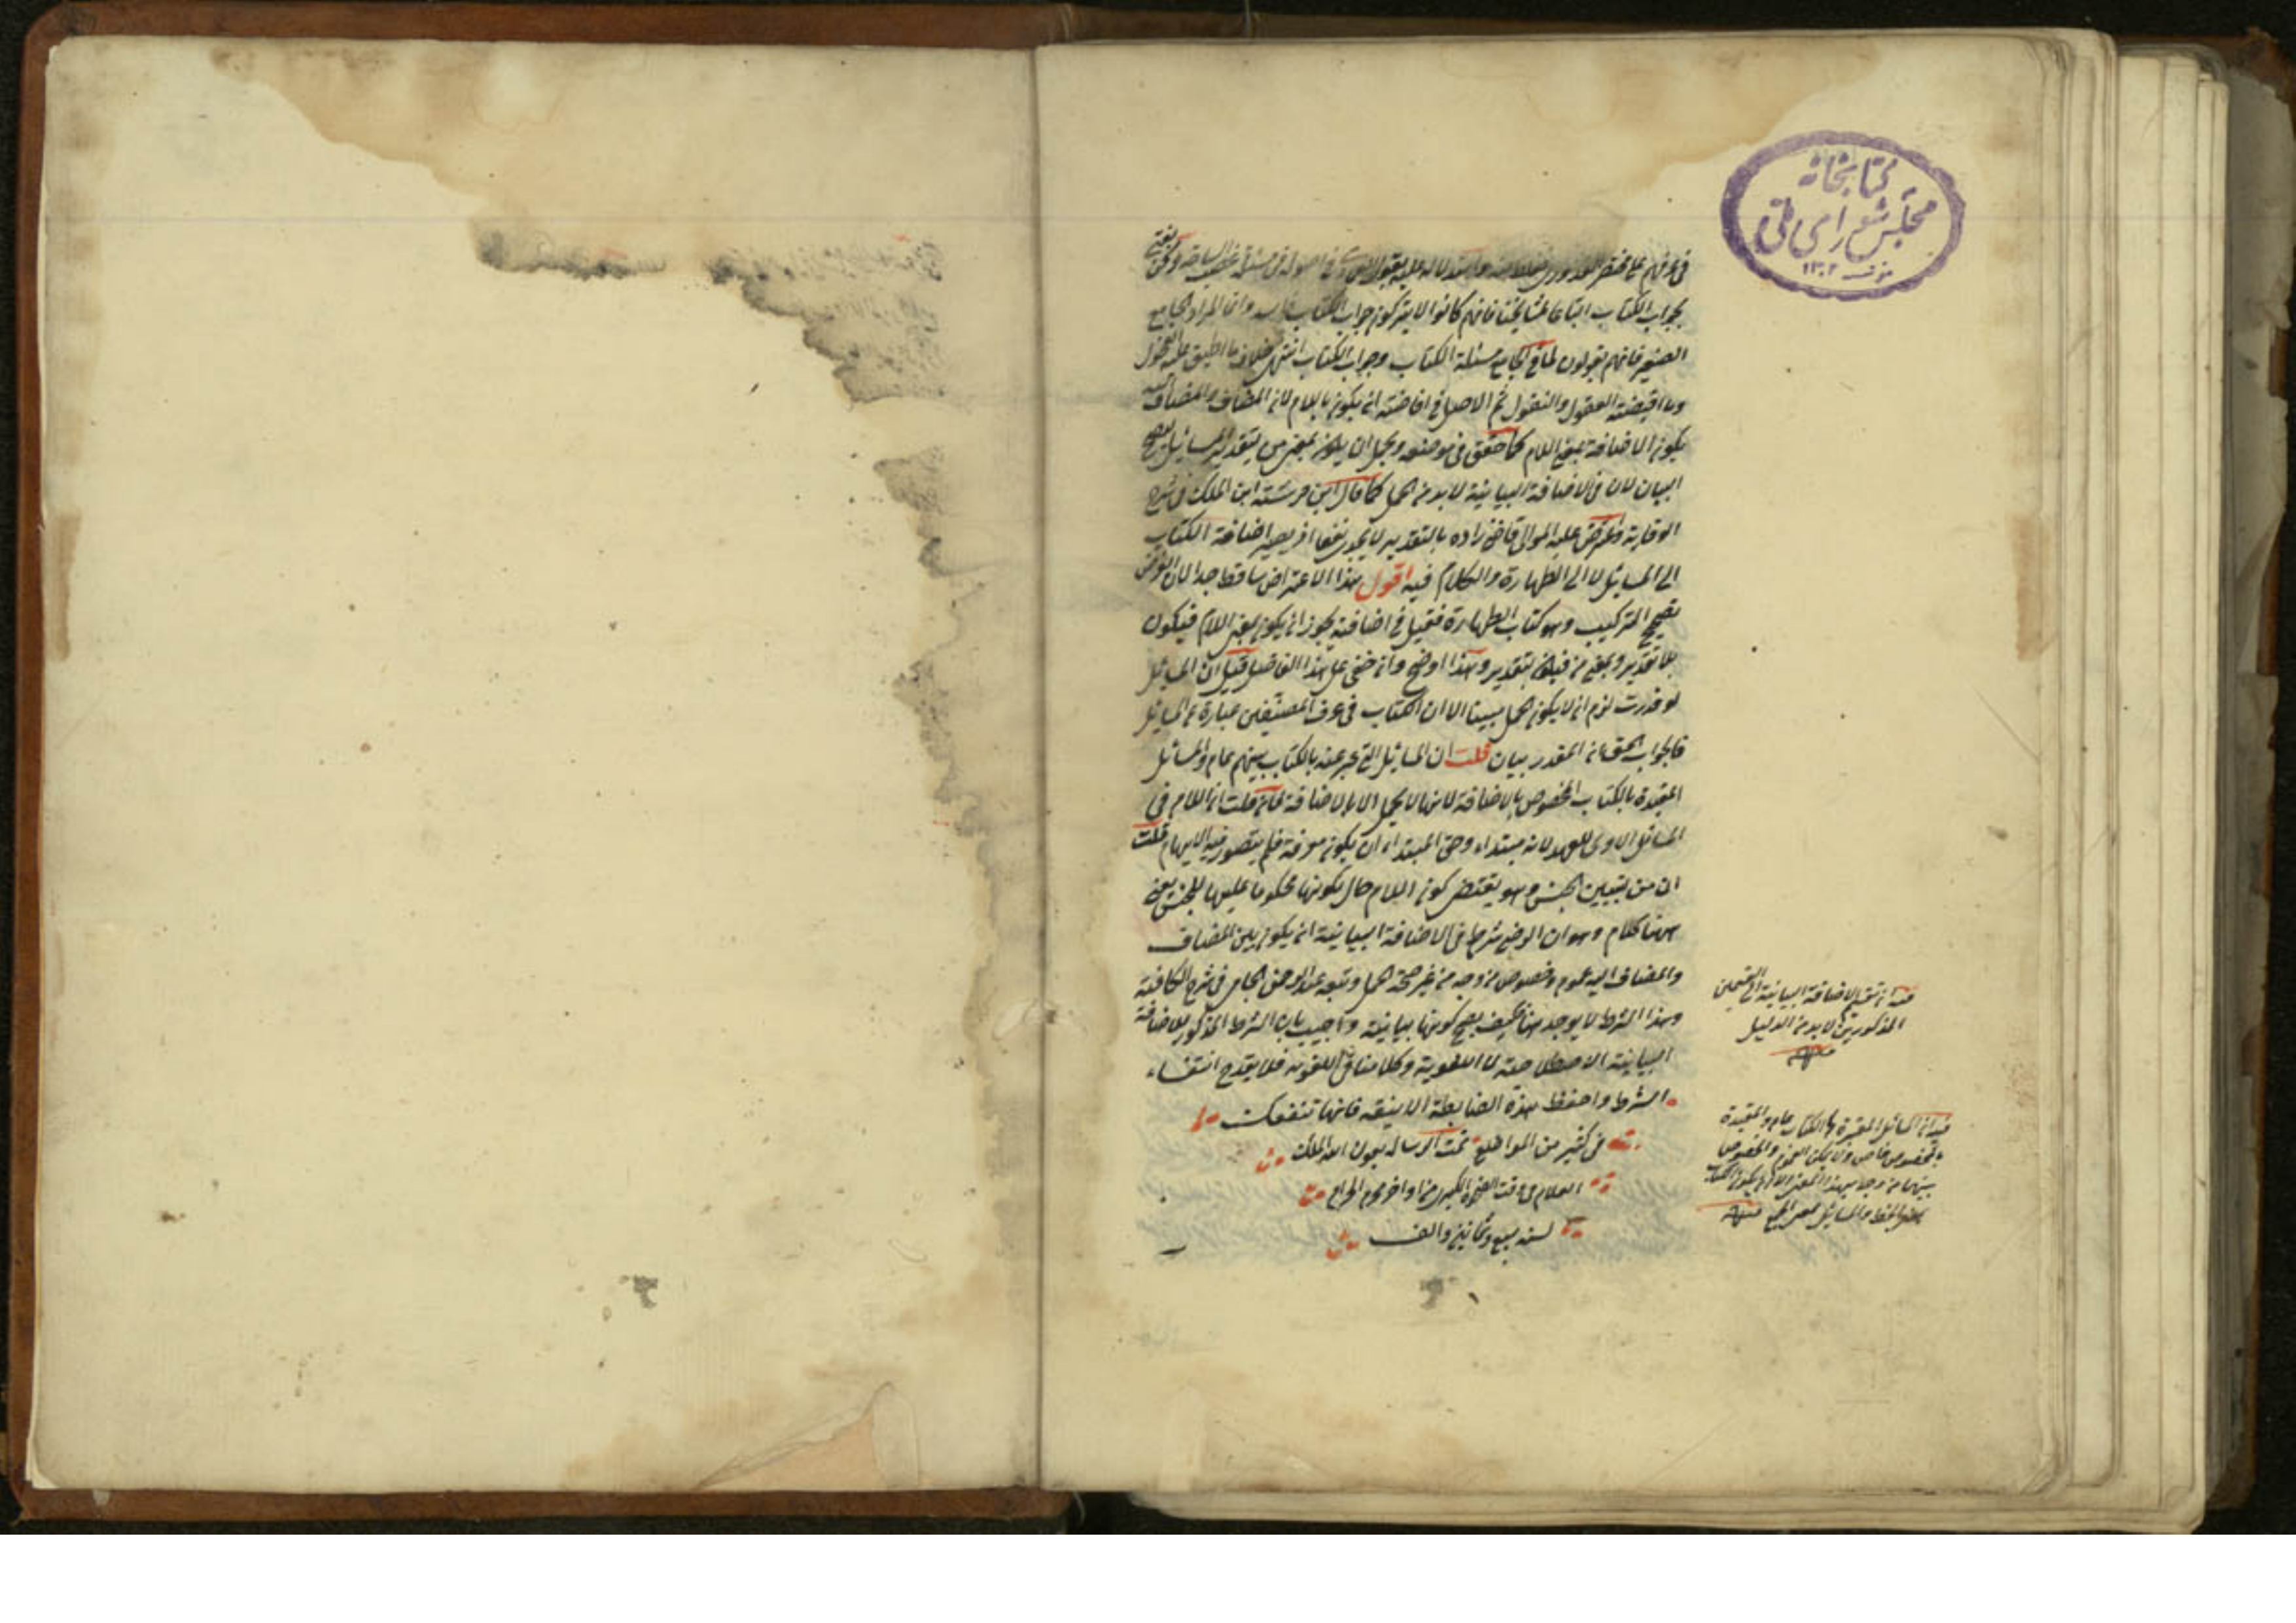 كتابخانه
مجلس شورای ملی
١٣٠٢
بجواب الكتاب اتباعا لمشايخنا فانهم كانوا لا يتركون جواب الكتاب وانما المراد الجامع
الصغير فانهم يقولون لما فى الجامع مسئلة الكتاب وجواب الكتاب انتهى خلاف ما اطبق عليه الفحول
وما اقتضته العقول والنقول ثم الاصل فى اضافته ان يكون باللام لان المضاف والمضاف اليه
يكون الاضافة بمعنى اللام كما حقق فى موضعه ويحمل ان يكون بمعنى من بتقدير المسائل
البيان لان فى الاضافة البيانية لا بد من الحمل كما قال ابن فرشته ابن الملك فى شرح
الوقاية واعترض عليه المولى قاضى زاده بالتقدير لا يجدى نفعا اذ يصير اضافة الكتاب
الى المسائل لا الى الطهارة والكلام فيه اقول هذا الاعتراض ساقط جدا لان الغرض
تصحيح التركيب وهو كتاب الطهارة فقيل فى اضافته يجوز ان يكون بمعنى اللام فيكون
بلا تقدير وبمعنى من فيكون بتقدير وهذا اوضح وان خفى على هذا الفاضل قيل ان المسائل
لو قدرت لزم ان لا يكون الحمل مبينا الا ان الكتاب فى عرف المصنفين عبارة عن المسائل
فالجواب الحق ان المقدر بيان قلت ان المسائل التى عبر عنه بالكتاب بينهم عام والمسائل
المقيدة بالكتاب المخصوص بالاضافة لانها لا يحمل الا بالاضافة فان قلت ان اللام فى
المسائل الاولى للعهد لانه مبتداء وحق المبتداء ان يكون معرفة فلم يتصور فيه الابهام قلت
ان من بتبيين الجنس وهو يقتضى كون اللام حال كونها محكوما عليها للجنس بقى
ههنا كلام وهو ان الرضى شرط فى الاضافة البيانية ان يكون بين المضاف
والمضاف اليه عموم وخصوص من وجه من غير صحة الحمل وتبعه عبد الرحمن الجامى فى شرح الكافية
وهذا الشرط لا يوجد ههنا فكيف يصح كونها بيانية واجيب بان الشرط المذكور للاضافة
البيانية الاصطلاحية لا اللغوية وكلامنا فى اللغوية فلا يقدح انتفاء
الشرط واحفظ هذه الضابطة الانيقة فانها تنفعك
فى كثير من المواضع تمت الرسالة بعون الله الملك
العلام فى وقت الضحوة الكبرى من اواخر محرم الحرام
لسنه سبع وثمانين والف
فيه ان تقسيم الاضافة البيانية الى القسمين
المذكورين لا بد من الدليل
منه
فيه ان المسائل المعبرة بالكتاب عام والمقيدة
بالمخصوص خاص ولا يكون العموم والخصوص